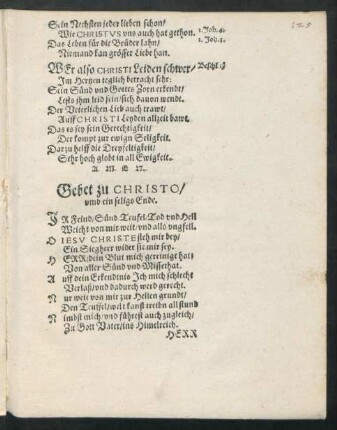 Sein Nechsten jeder lieben schon/
Wie CHRISTVS uns auch hat gethon. 1. Joh. 4.
Das Leben für die Brüder lahn/ 1. Joh. 3.
Niemand kan grösser Liebe han.
WEr also CHRISTI Leiden schwer/ Beschl.
Im Hertzen teglich betracht sehr:
Sein Sünd vnd Gottes Zorn erkendt/
Lests ihm leid sein/sich dauon wendt.
Der Veterlichen Lieb auch trawt/
Auff CHRISTI Leyden allzeit bawt.
Das es sey sein Gerechtigkeit/
Der kompt zur ewign Seligkeit.
Darzu helff die Dreyfeltigkeit/
Sehr hoch globt in all Ewigkeit.
A M E N.
Gebet zu CHRISTO/
vmb ein seligs Ende.
IR Feind/Sünd/Teufel/Tod vnd Hell
Weicht von mir weit/vnd alls vngfell.
O IESV CHRISTE steh mir bey/
Ein Siegherr wider sie mir sey.
HERR/dein Blut mich gereinigt hat/
Von aller Sünd vnd Missethat.
Auff dein Erkendtnis Ich mich schlecht
Verlaß/vnd dadurch werd gerecht.
Nur weit von mir zur Hellen grundt/
Den Teuffel/welt kanst treibn all stund
Nimbst mich/vnd führest auch zugleich/
Zu Gott Vater/ins Himelreich.
HERR